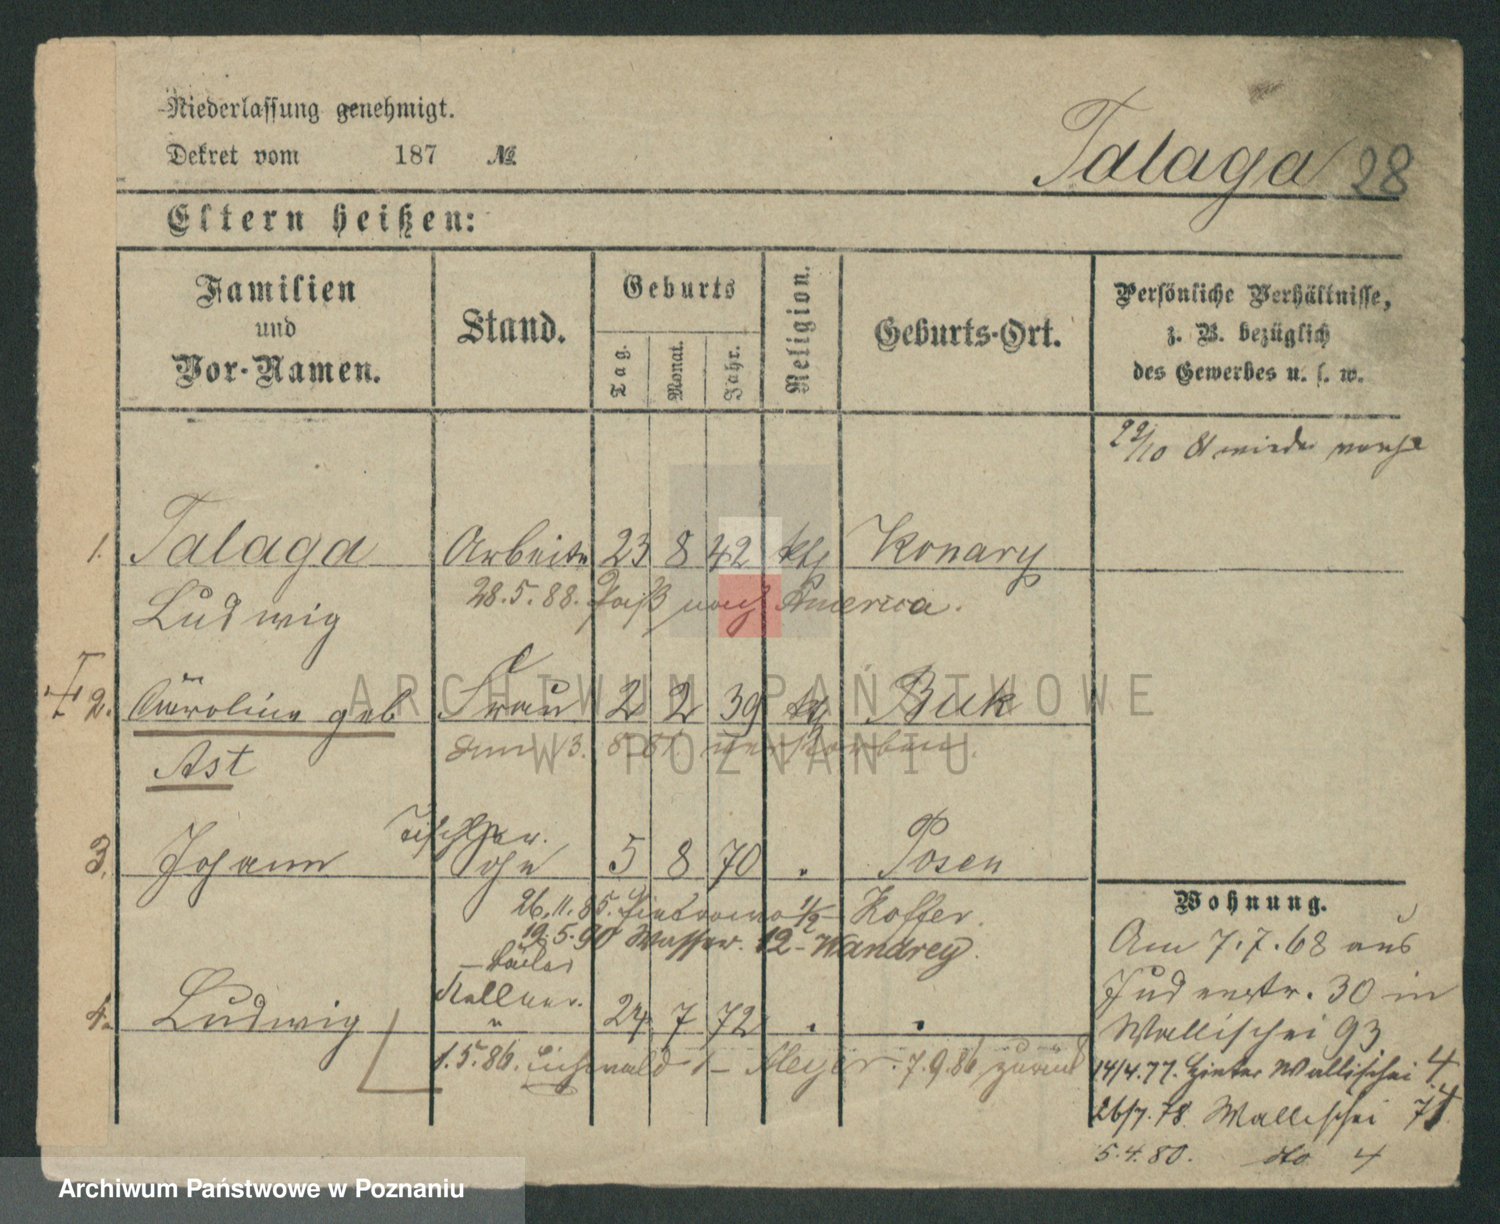 Niederlassung genehmigt.
Dekret vom 187 №
Talaga 28
Eltern heißen:
Familien
und
Vor-Namen.
Stand.
Geburts
Tag.
Monat.
Jahr.
Religion.
Geburts-Ort.
Persönliche Verhältnisse,
z. B. bezüglich
des Gewerbes u. s. w.
22/10
1. Talaga Arbeiter 23 8 42 kth Konary
Ludwig
28.5.88. Paß nach America.
† 2. Caroline geb Frau 2 2 39 kth Buk
Ast
verstorben.
Tischler.
3. Johann Sohn 5 8 70 " Posen
26.11.85. 1/2 – Koffer.
19.5.90 Wasser. 12 – Wandrey.
Kellner.
4. Ludwig " 24 7 72 " "
1.5.86. Eichwald 1 – Meyer. 7.9.86 zurück
Wohnung.
Am 7.7.68 aus
Judenstr. 30 in
Wallischei 93
14/4.77. Hinter Wallischei 4
26/7.78. Wallischei 74
5.4.80. do 4
ARCHIWUM PAŃSTWOWE
W POZNANIU
Archiwum Państwowe w Poznaniu